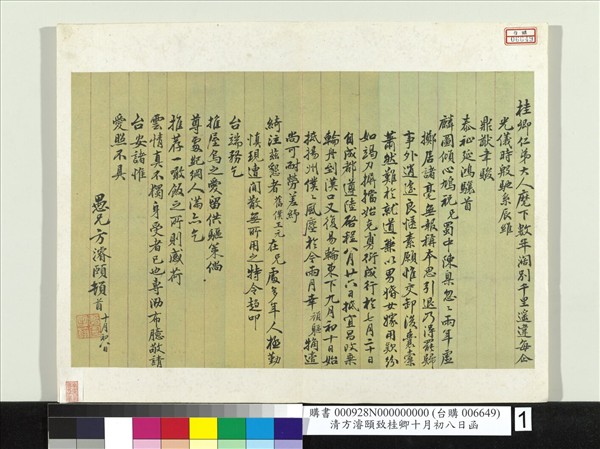 桂卿仁弟大人麾下數年闊別千里遙違每企
光儀時殷馳系辰維
鼎猷聿駿
泰祉延鴻驤首
麟圖傾心鳩祝兄蜀中陳臬忽忽兩年虛
擲居諸毫無報稱本思引退乃得罷歸
事外逍遙良愜素願惟交卸後囊橐
蕭然難於就道兼以男婚女嫁用款紛
如竭力摒擋始克剪行成行於七月二十日
自成都遵陸啟程八月廿六日抵宜昌改乘
輪舟到漢口又復易輪東下九月初十日始
抵揚州僕僕風塵於今兩月幸頑軀猶遠
尚可耐勞差紓
綺注茲懇者舊僕王元在兄處多年人極勤
慎現遣閒散無所用之特令趨叩
台端務乞
推屋烏之愛留供驅策倘
尊處現綱人滿亦乞
推薦一噉飯之所則感荷
雲情真不獨身受者已也專泐布臆敬請
台安諸惟
愛照不具
愚兄方濬頤頓首 十月初八日
購書 000928N000000000 (台購 006649)
清方濬頤致桂卿十月初八日函
1